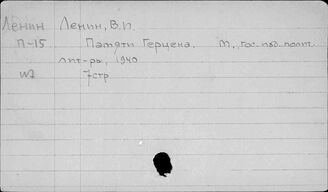 Ленин Ленин, В.И.
П-15 Памяти Герцена. М., Гос. изд. полит.
лит-ры, 1940
7 стр